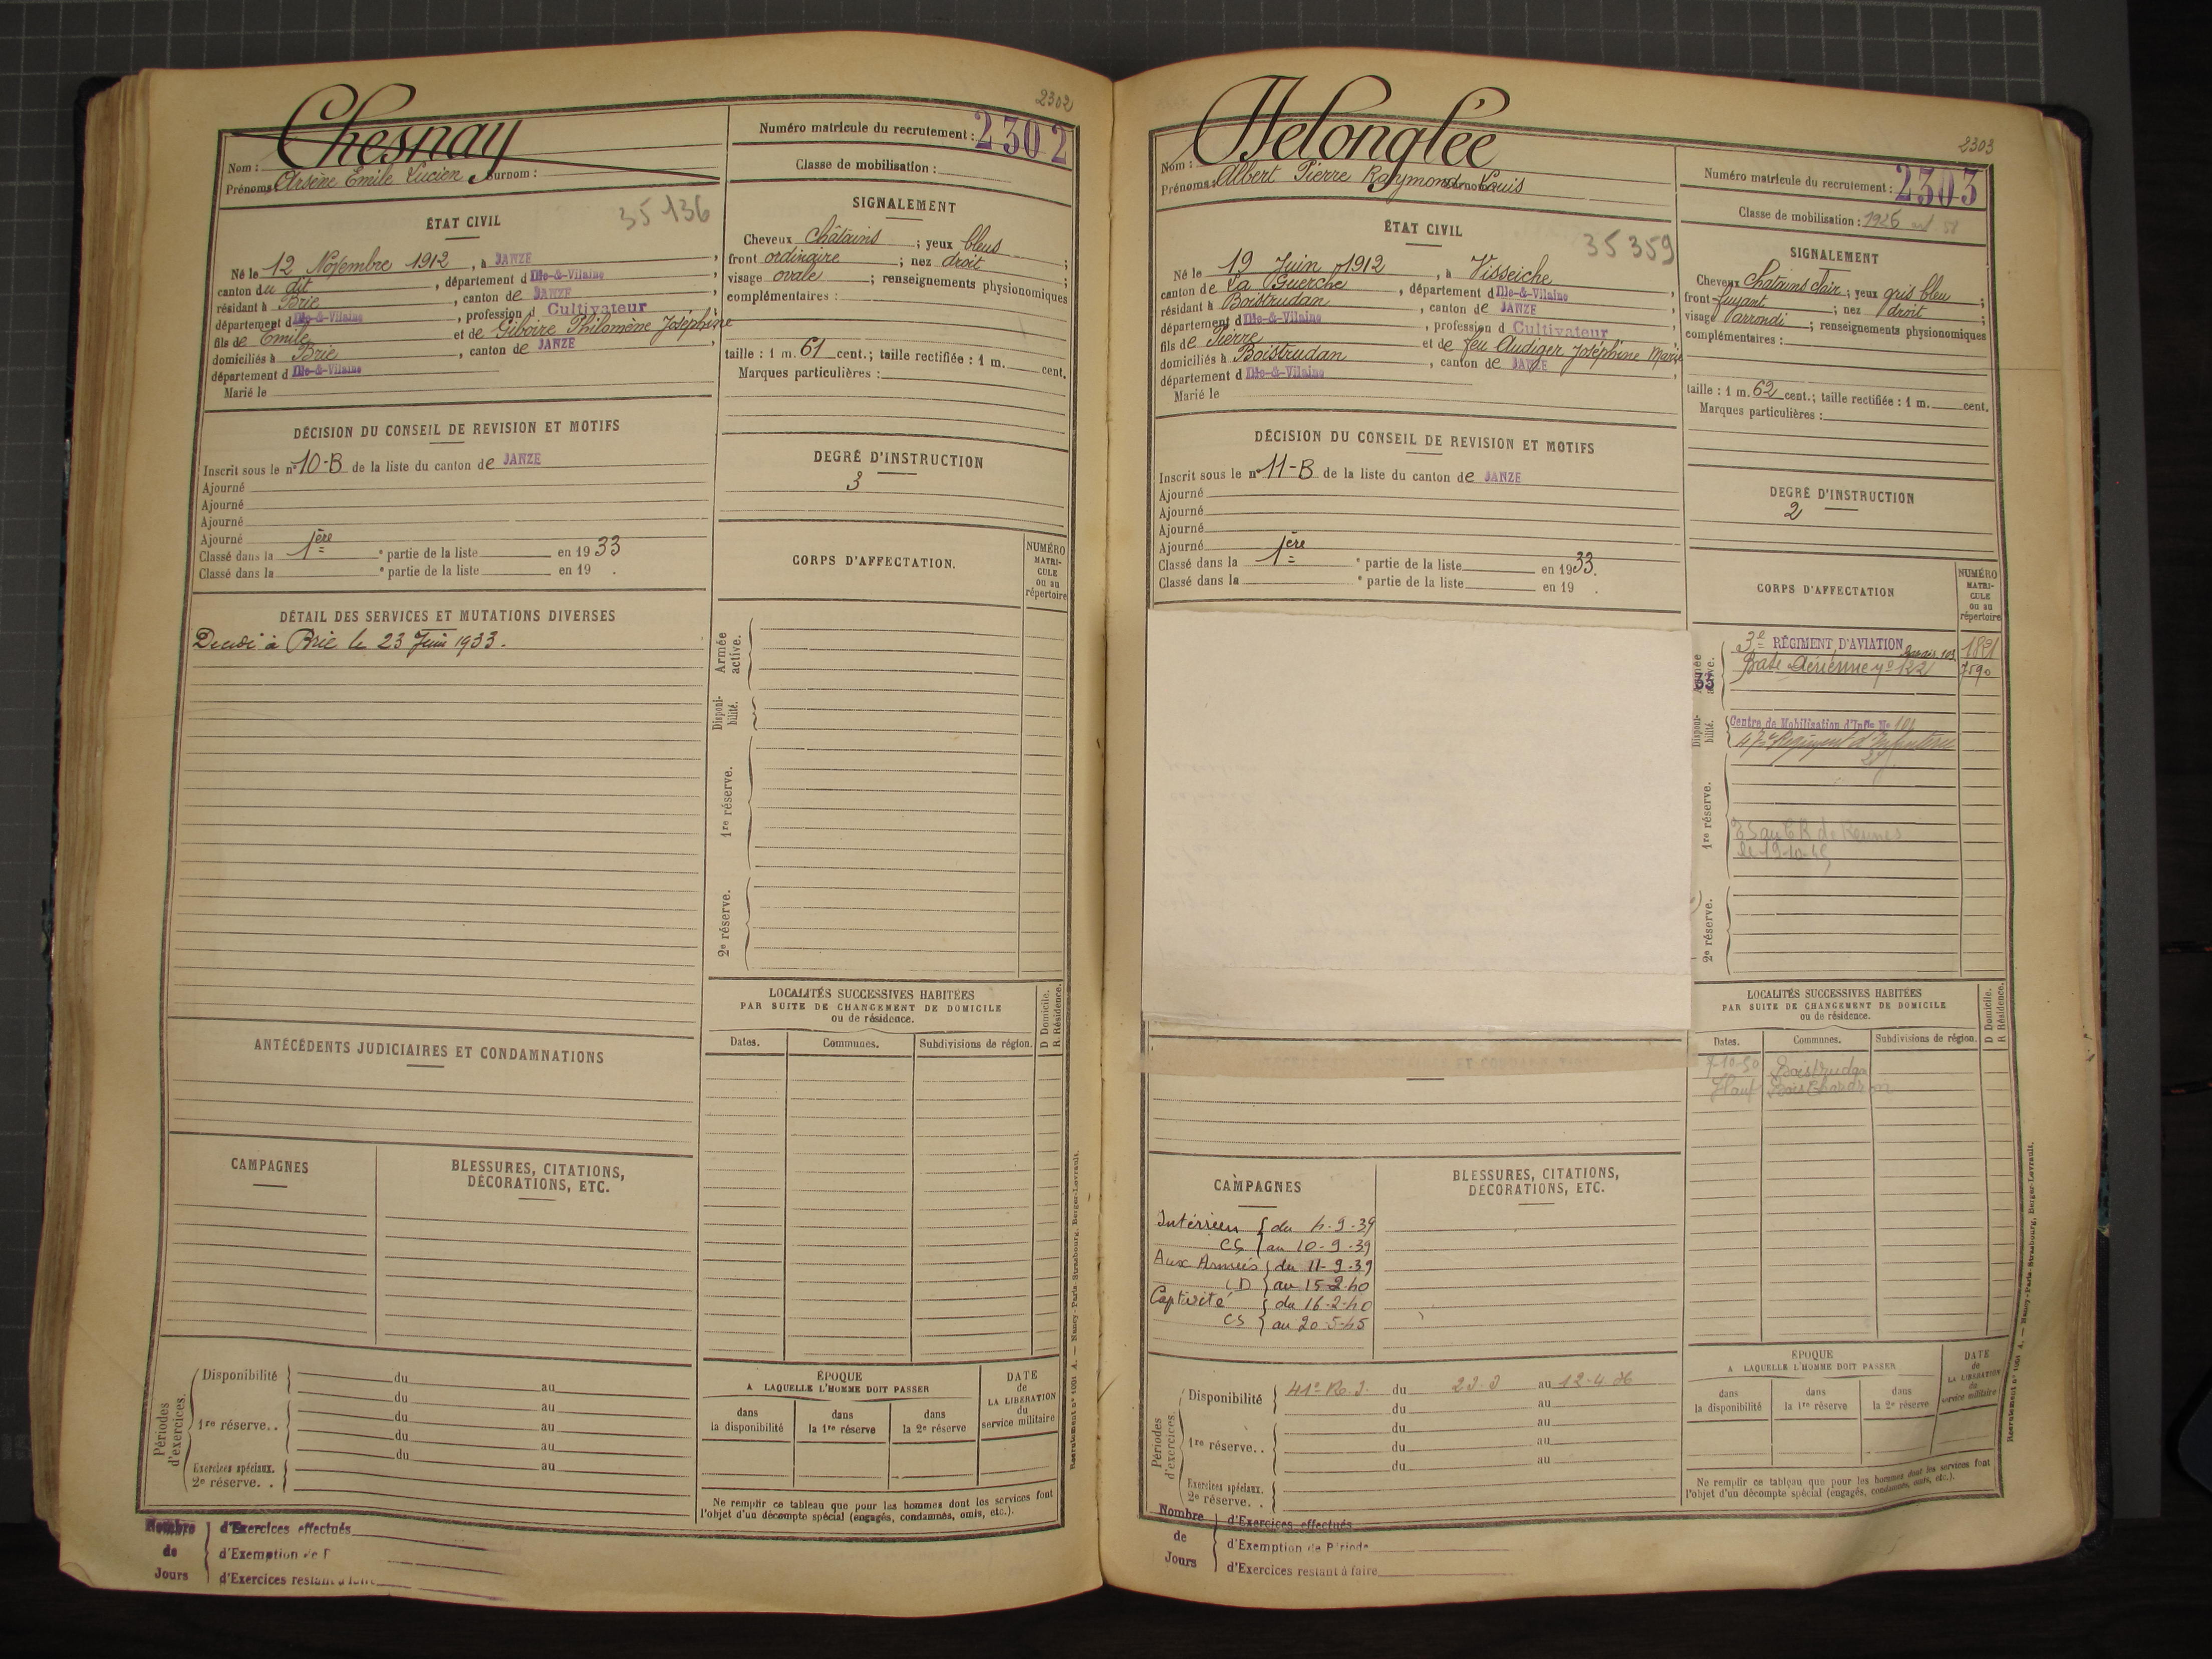 2302
Chesnay
Nom :
Prénoms : Arsène Emile Lucien Surnom :
Numéro matricule du recrutement : 2302
Classe de mobilisation :
ÉTAT CIVIL
35136
Né le 12 Novembre 1912, à JANZE,
canton du dit, département d Ille-&-Vilaine,
résidant à Brie, canton de JANZE,
département d Ille-&-Vilaine, profession d Cultivateur
fils de Emile et de Giboire Philomène Joséphine
domiciliés à Brie, canton de JANZE,
département d Ille-&-Vilaine
Marié le
SIGNALEMENT
Cheveux Châtains ; yeux bleus ;
front ordinaire ; nez droit ;
visage ovale ; renseignements physionomiques
complémentaires :
taille : 1 m. 61 cent.; taille rectifiée : 1 m. cent.
Marques particulières :
DÉCISION DU CONSEIL DE REVISION ET MOTIFS
Inscrit sous le n° 10-B de la liste du canton de JANZE
Ajourné
Ajourné
Ajourné
Ajourné
Classé dans la 1ère e partie de la liste en 1933
Classé dans la e partie de la liste en 19 .
DEGRÉ D'INSTRUCTION
3
DÉTAIL DES SERVICES ET MUTATIONS DIVERSES
Décédé à Brie le 23 Juin 1933.
CORPS D'AFFECTATION.
NUMÉRO
MATRI-
CULE
ou au
répertoire
Armée
active.
Disponi-
bilité.
1re réserve.
2e réserve.
ANTÉCÉDENTS JUDICIAIRES ET CONDAMNATIONS
LOCALITÉS SUCCESSIVES HABITÉES
PAR SUITE DE CHANGEMENT DE DOMICILE
ou de résidence.
D Domicile.
R Résidence.
Dates. Communes. Subdivisions de région.
CAMPAGNES
BLESSURES, CITATIONS,
DÉCORATIONS, ETC.
Périodes
d'exercices.
Disponibilité du au
du au
1re réserve.. du au
du au
Exercices spéciaux. du au
2e réserve. .
ÉPOQUE
A LAQUELLE L'HOMME DOIT PASSER
dans
la disponibilité
dans
la 1re réserve
dans
la 2e réserve
DATE
de
LA LIBÉRATION
du
service militaire
Ne remplir ce tableau que pour les hommes dont les services font
l'objet d'un décompte spécial (engagés, condamnés, omis, etc.).
Recrutement n° 1001 A. — Nancy-Paris-Strasbourg, Berger-Levrault.
Nombre
de
Jours
d'Exercices effectués
d'Exemption de P
d'Exercices restant à faire
2303
Delonglée
Nom :
Prénoms : Albert Pierre Raymond Louis
Numéro matricule du recrutement : 2303
Classe de mobilisation : 1926
ÉTAT CIVIL
35359
Né le 19 Juin 1912, à Visseiche
canton de La Guerche, département d Ille-&-Vilaine,
résidant à Boistrudan, canton de JANZE,
département d Ille-&-Vilaine, profession d Cultivateur
fils de Pierre et de feu Audiger Joséphine Marie
domiciliés à Boistrudan, canton de JANZE,
département d Ille-&-Vilaine
Marié le
SIGNALEMENT
Cheveux Chatains clair ; yeux gris bleu ;
front fuyant ; nez droit ;
visage arrondi ; renseignements physionomiques
complémentaires :
taille : 1 m. 62 cent.; taille rectifiée : 1 m. cent.
Marques particulières :
DÉCISION DU CONSEIL DE REVISION ET MOTIFS
Inscrit sous le n° 11-B de la liste du canton de JANZE
Ajourné
Ajourné
Ajourné
Ajourné
Classé dans la 1ère e partie de la liste en 1933.
Classé dans la e partie de la liste en 19 .
DEGRÉ D'INSTRUCTION
2
CORPS D'AFFECTATION
NUMÉRO
MATRI-
CULE
ou au
répertoire
33
3e RÉGIMENT D'AVIATION 1821
Base Aérienne n° 122 7590
Disponi-
bilité.
Centre de Mobilisation d'Infie No 101
47e Régiment d'Infanterie
1re réserve.
de Rennes
le 19-10-45
2e réserve.
LOCALITÉS SUCCESSIVES HABITÉES
PAR SUITE DE CHANGEMENT DE DOMICILE
ou de résidence.
D Domicile.
R Résidence.
Dates. Communes. Subdivisions de région.
7-10-50 Boistrudan
Haut Bois Chardron
CAMPAGNES
Intérieur du 4-9-39
CS au 10-9-39
Aux Armées du 11-9-39
CD au 15-2-40
Captivité du 16-2-40
CS au 20-5-45
BLESSURES, CITATIONS,
DÉCORATIONS, ETC.
Périodes
d'exercices.
Disponibilité 41e R.I. du 23-3 au 12-4 36
du au
du au
1re réserve.. du au
du au
Exercices spéciaux.
2e réserve. .
ÉPOQUE
A LAQUELLE L'HOMME DOIT PASSER
dans
la disponibilité
dans
la 1re réserve
dans
la 2e réserve
DATE
de
LA LIBÉRATION
du
service militaire
Ne remplir ce tableau que pour les hommes dont les services font
l'objet d'un décompte spécial (engagés, condamnés, omis, etc.).
Recrutement n° 1001 A. — Nancy-Paris-Strasbourg, Berger-Levrault.
Nombre
de
Jours
d'Exercices effectués
d'Exemption de Période
d'Exercices restant à faire